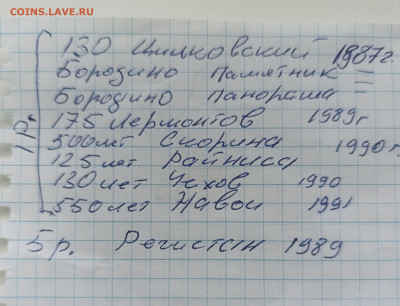 COINS.LAVE.RU
1 Р.
130 Циолковский 1987г.
Бородино памятник =
Бородино панорама =
175 Лермонтов 1989г
500лет Скорина 1990г.
125лет Райниса
130лет Чехов 1990
550лет Навои 1991
5р. Регистан 1989